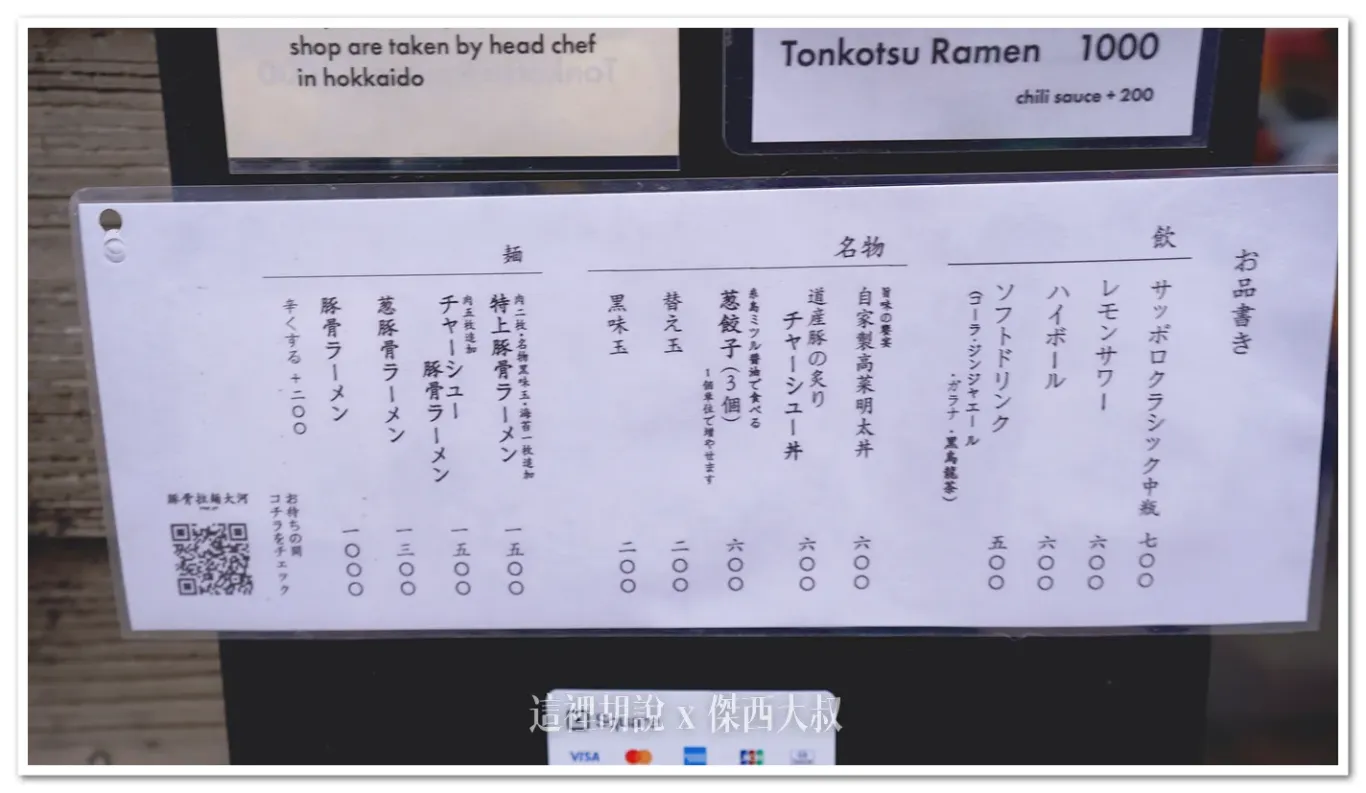 shop are taken by head chef
in hokkaido
Tonkotsu Ramen 1000
chili sauce + 200
お品書き
飲
サッポロクラシック中瓶 七〇〇
レモンサワー 六〇〇
ハイボール 六〇〇
ソフトドリンク 五〇〇
(コーラ・ジンジャエール
・ガラナ・黒烏龍茶)
名物
旨味の饗宴
自家製高菜明太丼 六〇〇
道産豚の炙り
チャーシュー丼 六〇〇
糸島ミツル醤油で食べる
葱餃子(3個) 六〇〇
1個単位で増やせます
替え玉 二〇〇
黒味玉 二〇〇
麺
肉二枚・名物黒味玉・海苔一枚追加
特上豚骨ラーメン 一五〇〇
肉五枚追加
チャーシュー
豚骨ラーメン 一五〇〇
葱豚骨ラーメン 一三〇〇
豚骨ラーメン 一〇〇〇
辛くする +二〇〇
お待ちの間
コチラをチェック
豚骨拉麺大河
這裡胡說 x 傑西大叔
Square
VISA